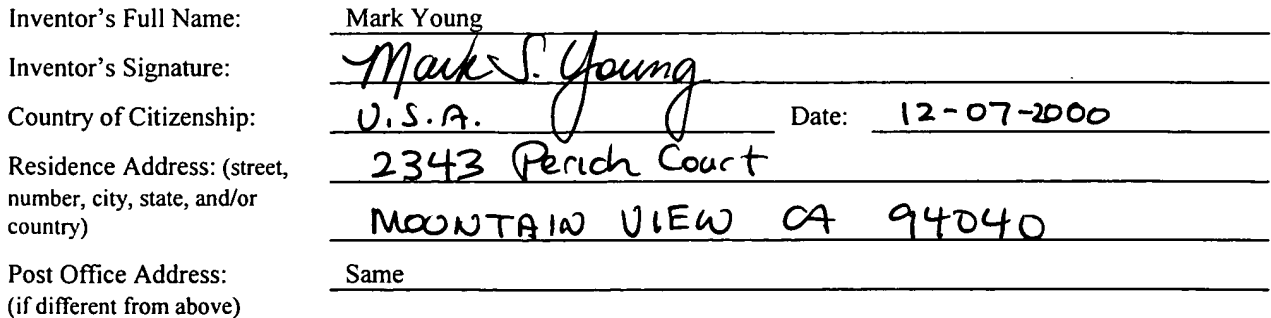 Inventor's Full Name: Mark Young
Inventor's Signature: Mark S. Young
Country of Citizenship: U.S.A. Date: 12-07-2000
Residence Address: (street, 2343 Perich Court
number, city, state, and/or
country) MOUNTAIN VIEW CA 94040
Post Office Address: Same
(if different from above)